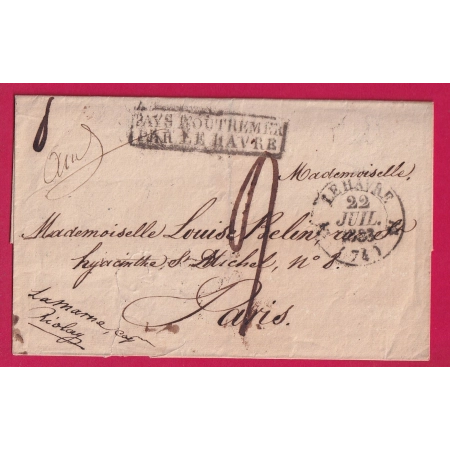 PAYS D'OUTREMER
PAR LE HAVRE
Mademoiselle,
LE HAVRE
22
JUIL.
(74)
Mademoiselle Louise Belin rue St
hyacinthe St Michel, N° 8.
Paris.
Lamarne, cap